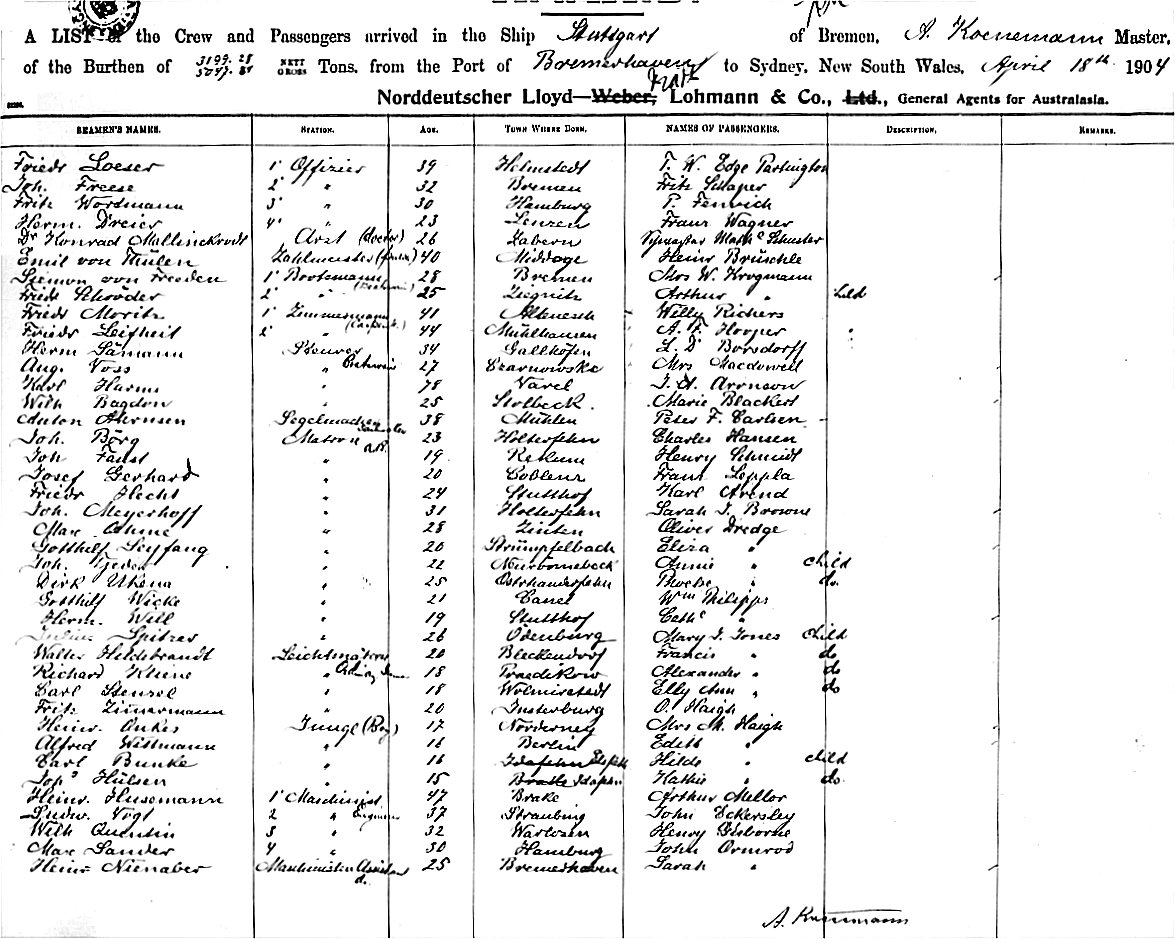 A LIST of the Crew and Passengers arrived in the Ship Stuttgart of Bremen, A. Koenemann Master,
of the Burthen of 3199.28 5047.87 NETT GROSS Tons, from the Port of Bremerhaven to Sydney, New South Wales, April 18th 1904
Norddeutscher Lloyd—Weber, Lohmann & Co., Ltd., General Agents for Australasia.
SEAMEN'S NAMES. STATION. AGE. TOWN WHERE BORN. NAMES OF PASSENGERS. DESCRIPTION. REMARKS.
Friedr Loeser 1' Offizier 39 Helmstedt T. W. Edge Partington
Joh. Freese 2' " 32 Bremen Fritz Schaper
Fritz Wordmann 3' " 30 Hamburg P. Fenwich
Herm. Dreier 4' " 23 Lenzen Franz Wagner
Dr Konrad Mallinckrodt Arzt (doctor) 26 Zabern Schuster
Emil von Thülen Zahlmeister 40 Middoge Heinr Brüschle
Siemon von Freeden 1' Bootsmann 28 Bremen Mrs W. Krogmann
Friedr Schroder 2' " 25 Liegnitz Arthur "
Friedr Moritz 1' Zimmermann 41 Altenesch Willy Richers
Friedr Leifheit 2' " 44 Mühlhausen A. F. Hooper
Herm Sämann Steurer 34 Gallhöfen L. D Borsdorff
Aug. Voss " 27 Czarnowske Mrs Macdowell
Karl Harms " 78 Varel J. A. Aronson
Wilh Bagdon " 25 Stolbeck Marie Blackert
Anton Ahrnsen Segelmacher 38 Mühlen Peter F. Carlsen
Joh. Börg Matrose A.B. 23 Holterfehn Charles Hansen
Joh Faust " 19 Rekum Henry Schmidt
Josef Gerhard " 20 Coblenz Franz Leppla
Friedr Hecht " 24 Stutthof Karl Arend
Joh. Meyerhoff " 31 Holterfehn Sarah J. Browne
Max Ohme " 28 Zinten Oliver Dredge
Gotthilf Seyfang " 20 Strümpfelbach Eliza "
Joh. Tjeden " 22 Annie " child
Dirk Ukena " 25 Ostrhauderfehn Phoebe " do
Gotthilf Wicke " 21 Wm Philipps
Herm. Will " 19 Stutthof Cathe "
Julius Spitzer " 26 Odenburg Mary J. Jones child
Walter Hildebrandt Leichtmatrose 20 Bleckendorf Francis " do
Richard Kliene " 18 Praedikow Alexander " do
Carl Stenzel " 18 Wolmirstedt Elly Ann " do
Fritz Zimmermann " 20 Insterburg O. Haigh
Heinr. Ankes Junge (Boy) 17 Norderney Mrs M. Haigh
Alfred Wittmann " 16 Berlin Edith "
Carl Bunke " 16 Hilda " child
Johs Hülsen " 15 Brake Idafehn Kathie " do
Heinr. Husemann 1' Maschinist 47 Brake Arthur Mellor
Ludw. Vogt 2 " Engineer 37 Straubing John Eckersley
Wilh Quentin 3 " 32 Warlosen Henry Osborne
Max Sander 4 " 30 Hamburg John Ormrod
Heinr Nienaber Maschinisten Assistant 25 Bremerhaven Sarah "
do.
A. Koenemann